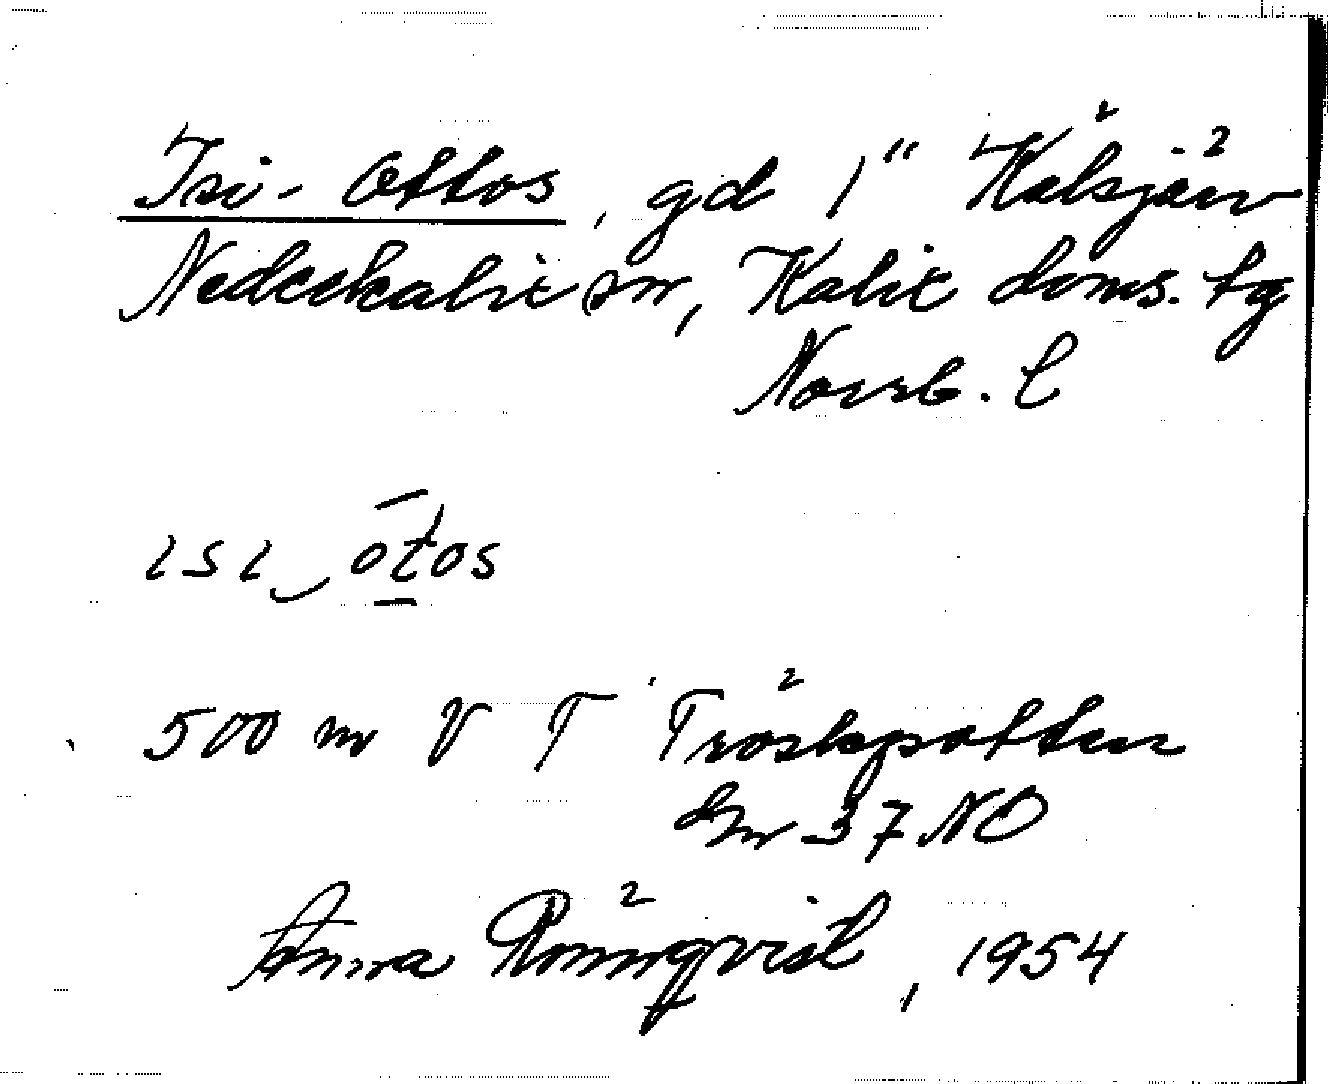 Isi-Ottos, gd 1" Kälsjärv
Nederkalix sn, Kalix doms. tg
Norrb. l
ɩsɩ‿ōt̲os
500 m V T Träskpotten
Gm 37 NO
Anna Rönnqvist, 1954